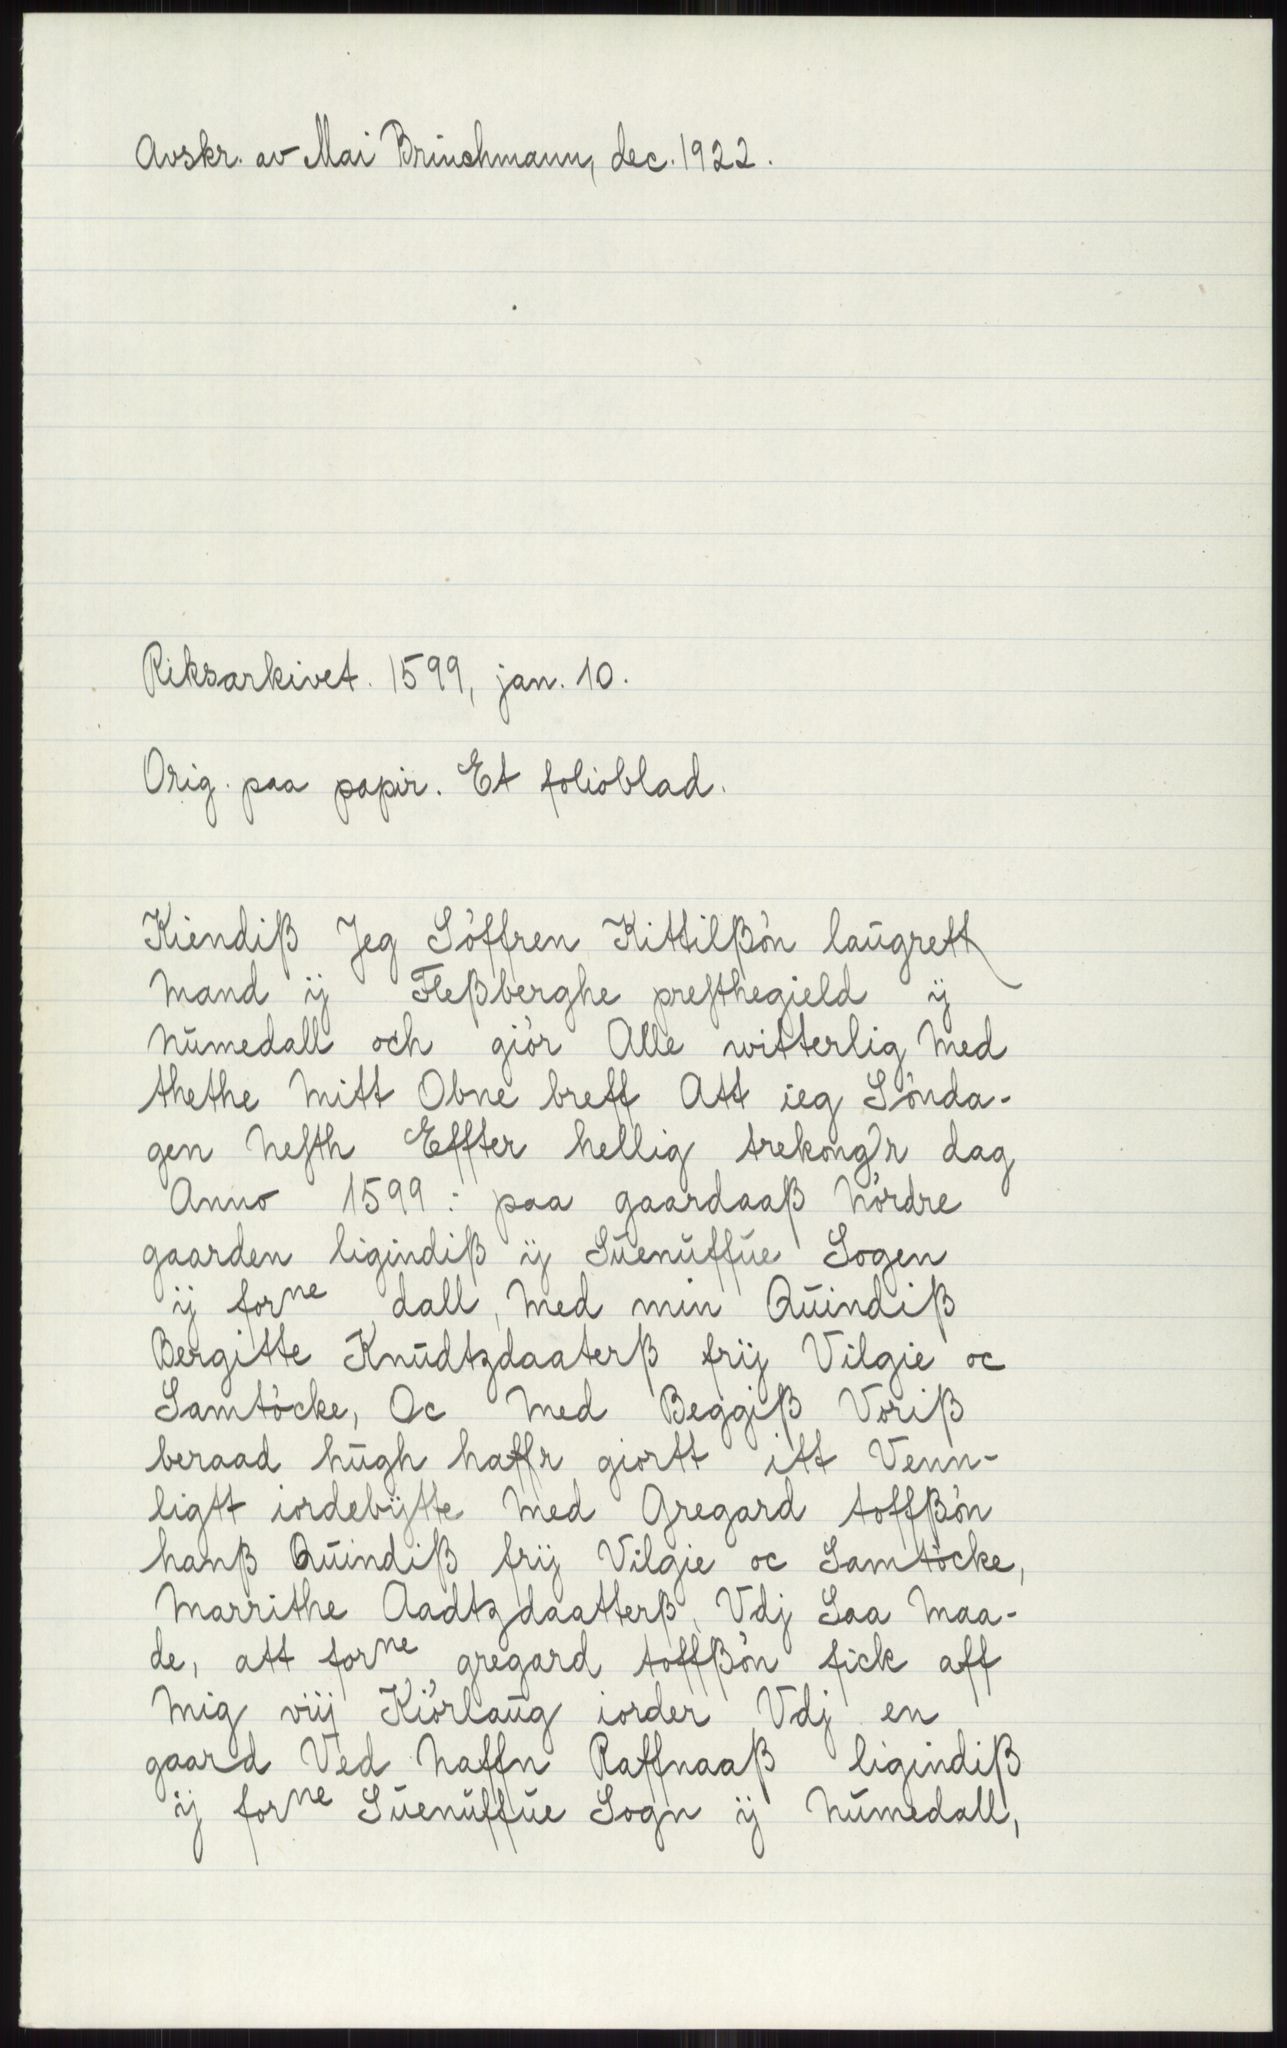 Avskr. av Mai Brinchmann, dec. 1922.
Riksarkivet. 1599, jan. 10.
Orig. paa papir. Et folioblad.
Kiendiß Jeg Söffren Kittilßön laŭgrett
Mand ij Fleßberghe presthegield ij
Nŭmedall och giör Alle witterlig Med
thethe Mitt Obne breff Att ieg Sönda-
gen Nesth Effter hellig trekong'r dag
Anno 1599: paa gaardaaß Nördre
gaarden ligindiß ij Sŭenŭffŭe Sogen
ij forne dall, Med min Qŭindiß
Bergitte Knŭdtzdaaterß frij Vilgie oc
Samtöcke, Oc Med Beggiß Voriß
beraad hŭgh haffr giortt itt Venn-
ligtt iordebÿtte Med Gregard toffßön
hanß Qŭindiß frij Vilgie oc Samtöcke,
Marrithe Aadtzdaatterß, Vdj Saa Maa-
de, att forne gregard toffßön fick aff
Mig viij Kiörlaŭg iorder Vdj en
gaard Ved Naffn Raffnaaß ligindiß
ij forne Sŭenŭffŭe Sogn ij Nŭmedall,